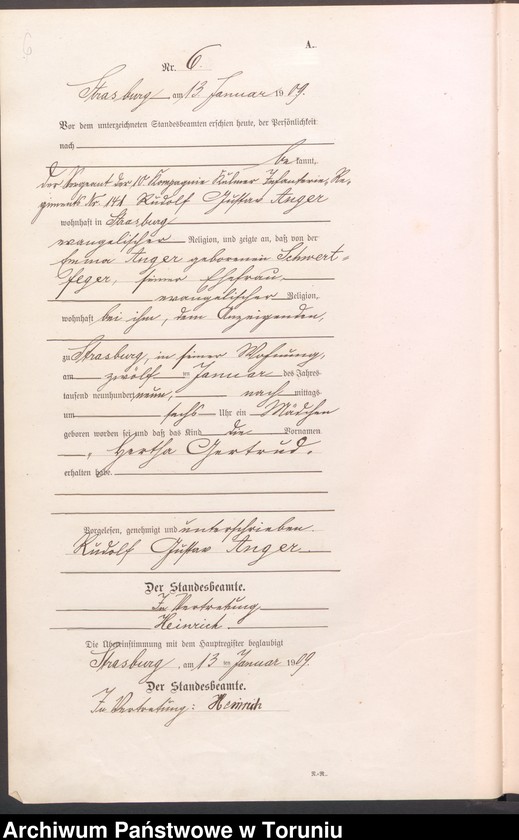 6
A.
Nr. 6.
Strasburg am 13 Januar 1909.
Vor dem unterzeichneten Standesbeamten erschien heute, der Persönlichkeit
nach
be kannt,
der Sergeant der 10t. Kompagnie Kulmer Infanterie, Re,
giments Nr. 141 Rudolf Gustav Anger
wohnhaft in Strasburg
evangelischer Religion, und zeigte an, daß von der
Emma Anger geborenen Schwert=
feger, seiner Ehefrau
evangelischer Religion,
wohnhaft bei ihm, dem Anzeigenden,
zu Strasburg, in seiner Wohnung,
am zwölf ten Januar des Jahres
tausend neunhundert neun, nach mittags
um sechs Uhr ein Mädchen
geboren worden sei und daß das Kind die Vornamen
„Hertha Gertrud.
erhalten habe.
Vorgelesen, genehmigt und unterschrieben.
Rudolf Gustav Anger
Der Standesbeamte.
In Vertretung
Heinrich
Die Übereinstimmung mit dem Hauptregister beglaubigt
Strasburg, am 13 ten Januar 1909.
Der Standesbeamte.
In Vertretung: Heinrich
R.-R.
Archiwum Państwowe w Toruniu